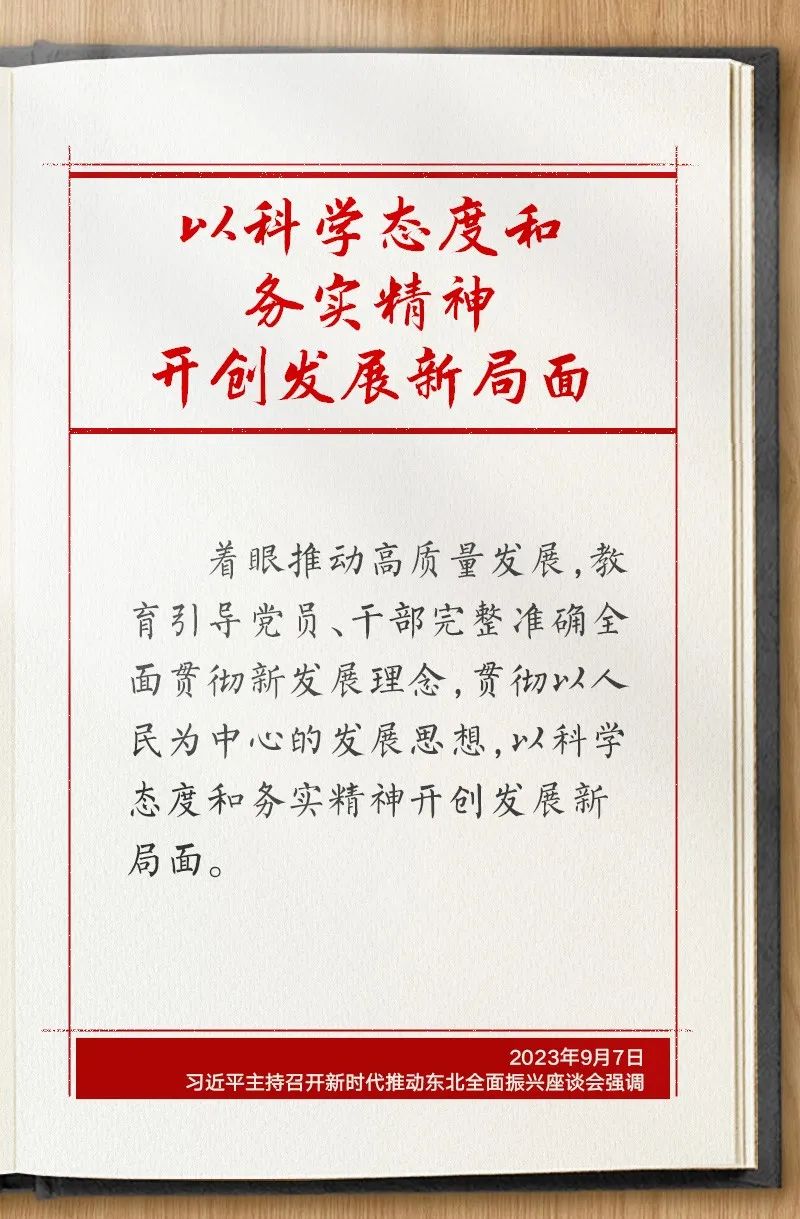 以科学态度和
务实精神
开创发展新局面
着眼推动高质量发展，教
育引导党员、干部完整准确全
面贯彻新发展理念，贯彻以人
民为中心的发展思想，以科学
态度和务实精神开创发展新
局面。
2023年9月7日
习近平主持召开新时代推动东北全面振兴座谈会强调